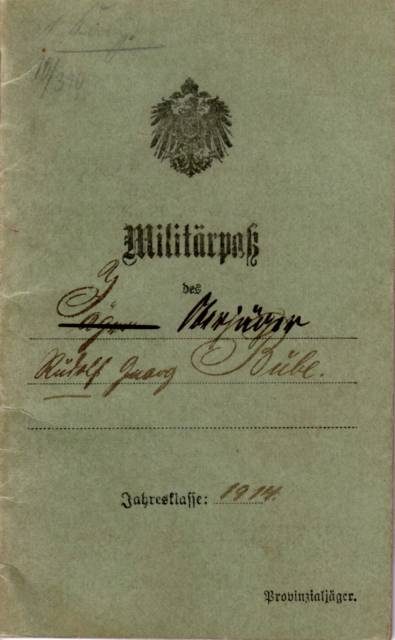 Militärpaß
des
Jäger Oberjäger
Rudolf Georg Bübe.
Jahresklasse: 1914.
Provinzialjäger.